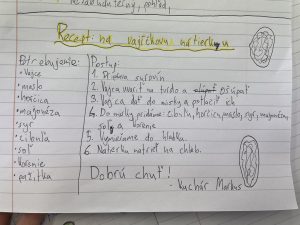 Recept: na vajíčkovu natierku
Potrebujeme:
• Vajce
• maslo
• horčica
• majonéza
• syr
• cibuľa
• soľ
• korenie
• pažitka
Postup:
1. Príprava surovín
2. Vajca uvariť na tvrdo a ošúpať
3. Vajca dať do misky a potlačiť ich
4. Do misky pridáme: cibuľu, horčicu, maslo, syr, majonézu,
soľ a korenie
5. Vymiešame do hladka.
6. Nátierku natrieť na chlieb.
Dobrú chuť!
- Kuchár Markus